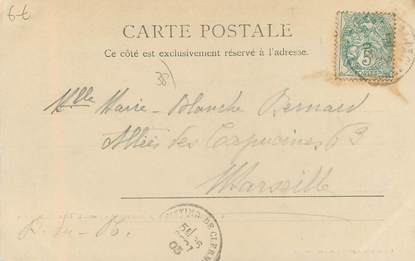 6-t
CARTE POSTALE
Ce côté est exclusivement réservé à l'adresse.
5
Mlle Marie-Blanche Bernard
Allées des Capucines 63
Marseille
B. du R.
03